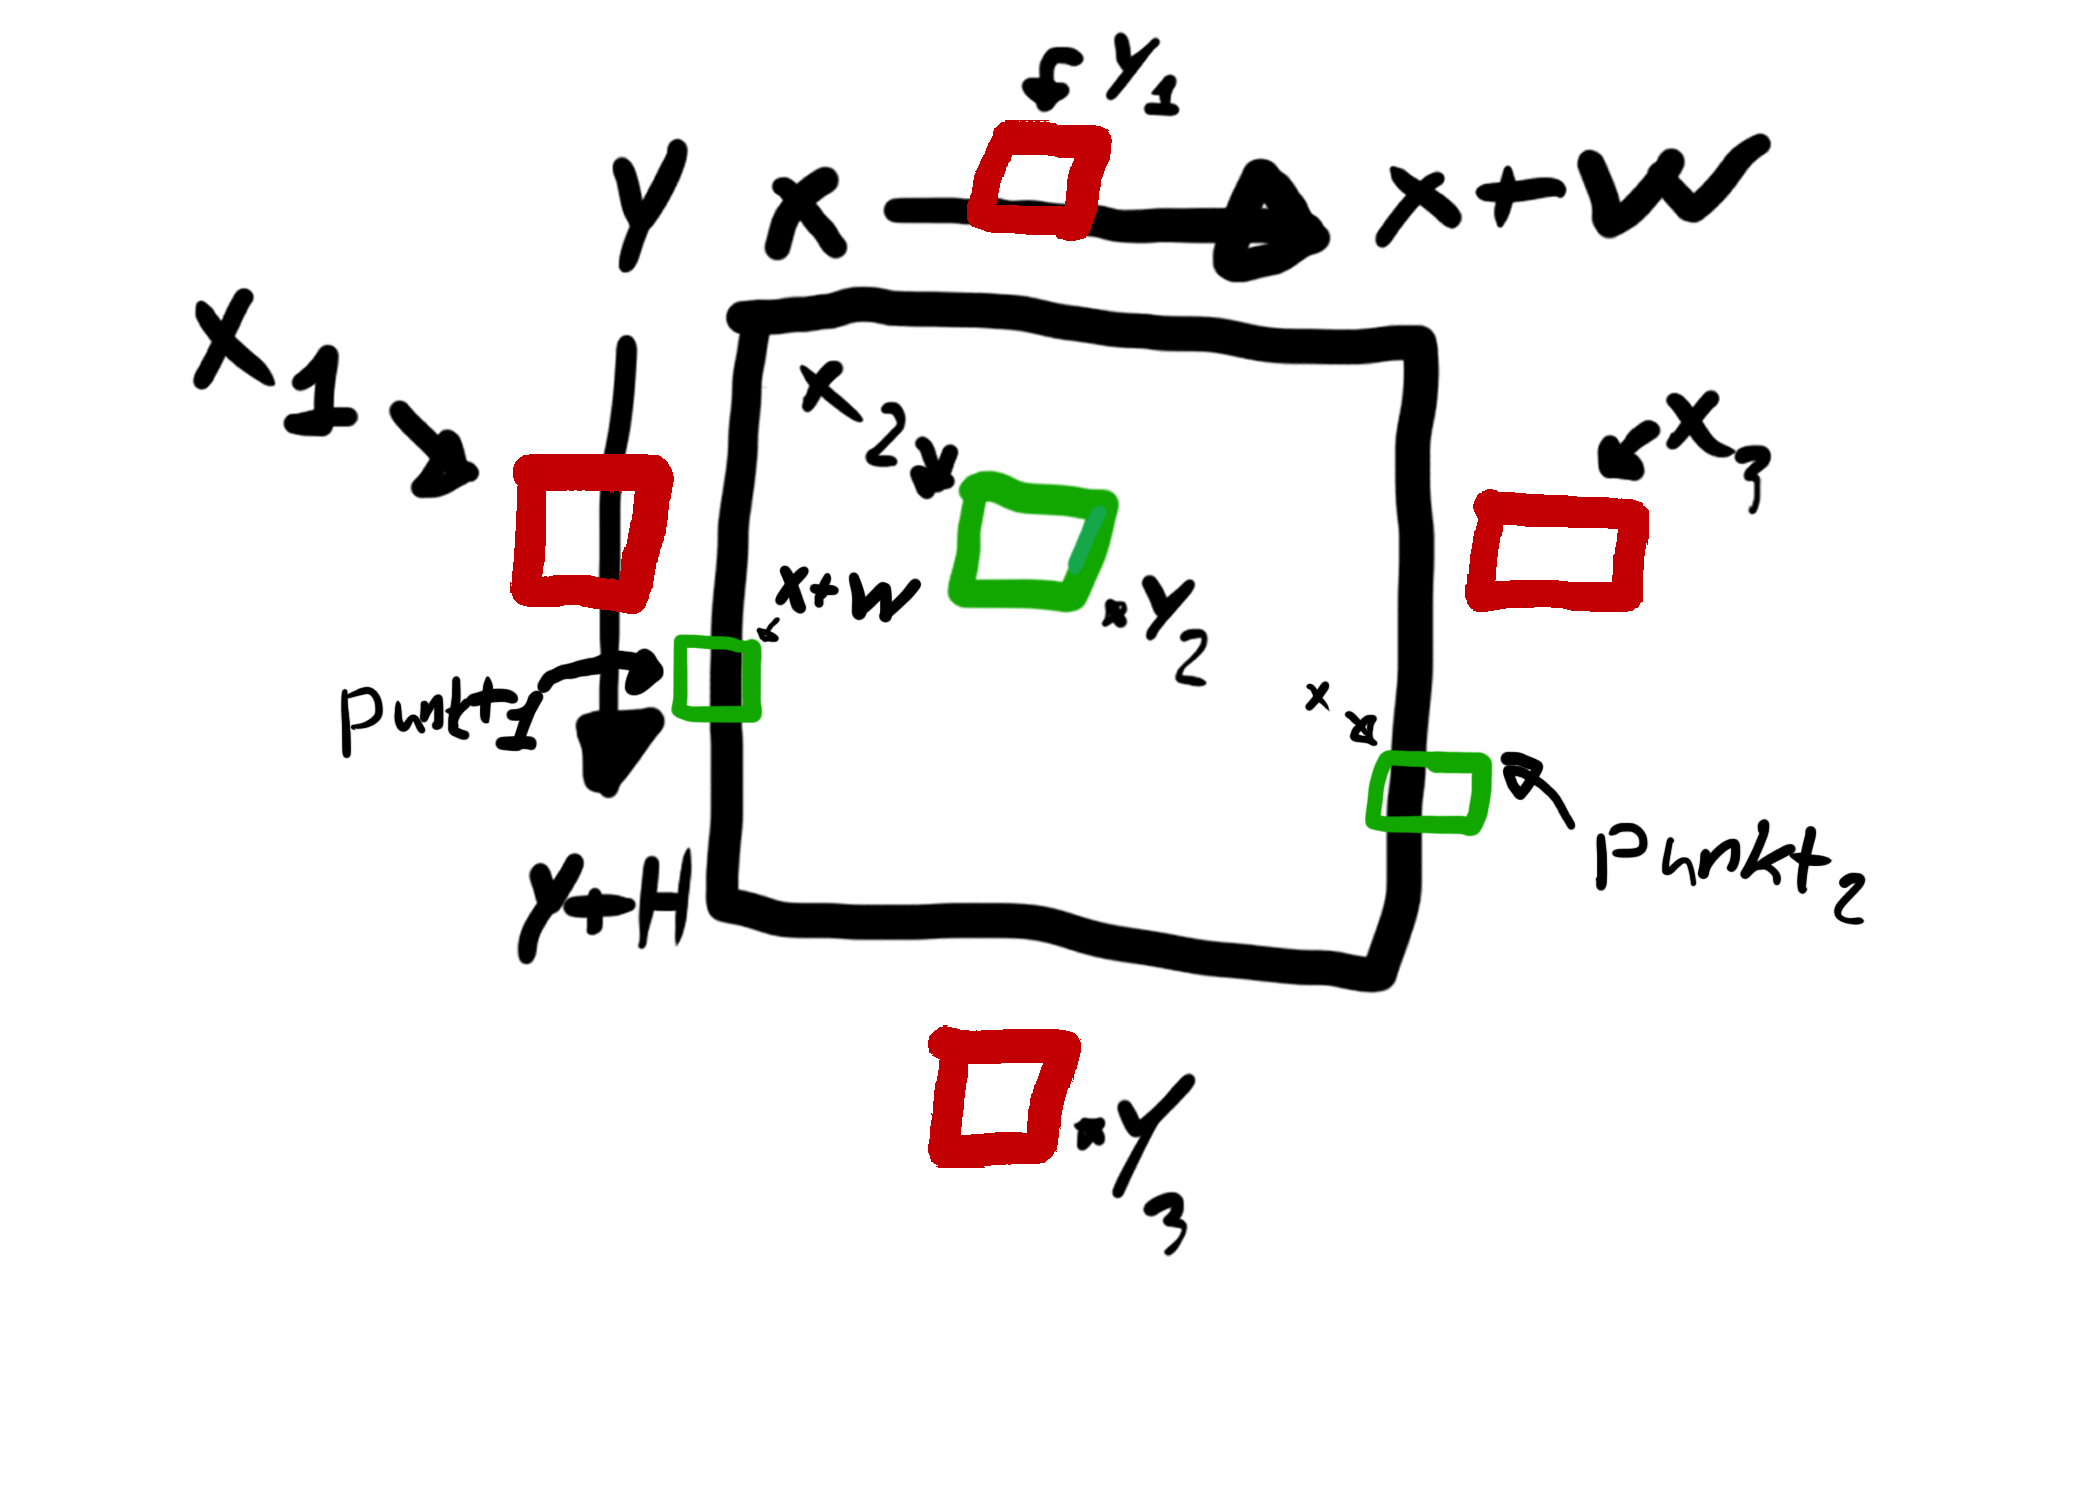 Y1
Y
X
X+W
X1
X2
X3
X+W
Y2
X
Punkt1
Punkt2
Y+H
Y3